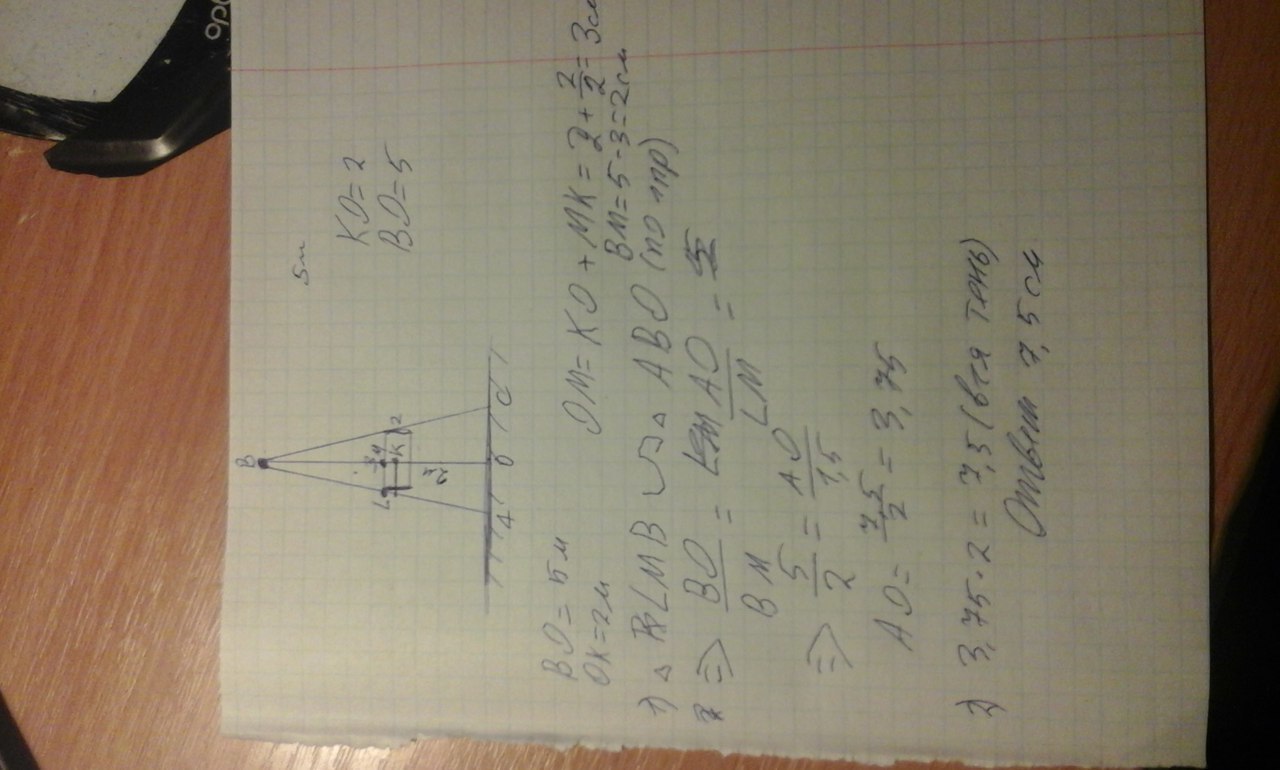 5м
KO = 2
BO = 5
B
L
M
K
2
A
O
C
BO = 5 м
OK = 2 м
OM = KO + MK = 2 + 2/2 = 3 см
BM = 5 - 3 = 2 см
1) △ LMB ∽ △ ABO (по
=> BO/BM = AO/LM =
=> 5/2 = AO/1,5
AO = 7,5/2 = 3,75
2) 3,75 · 2 = 7,5 (вся тень)
Ответ 7,5 см